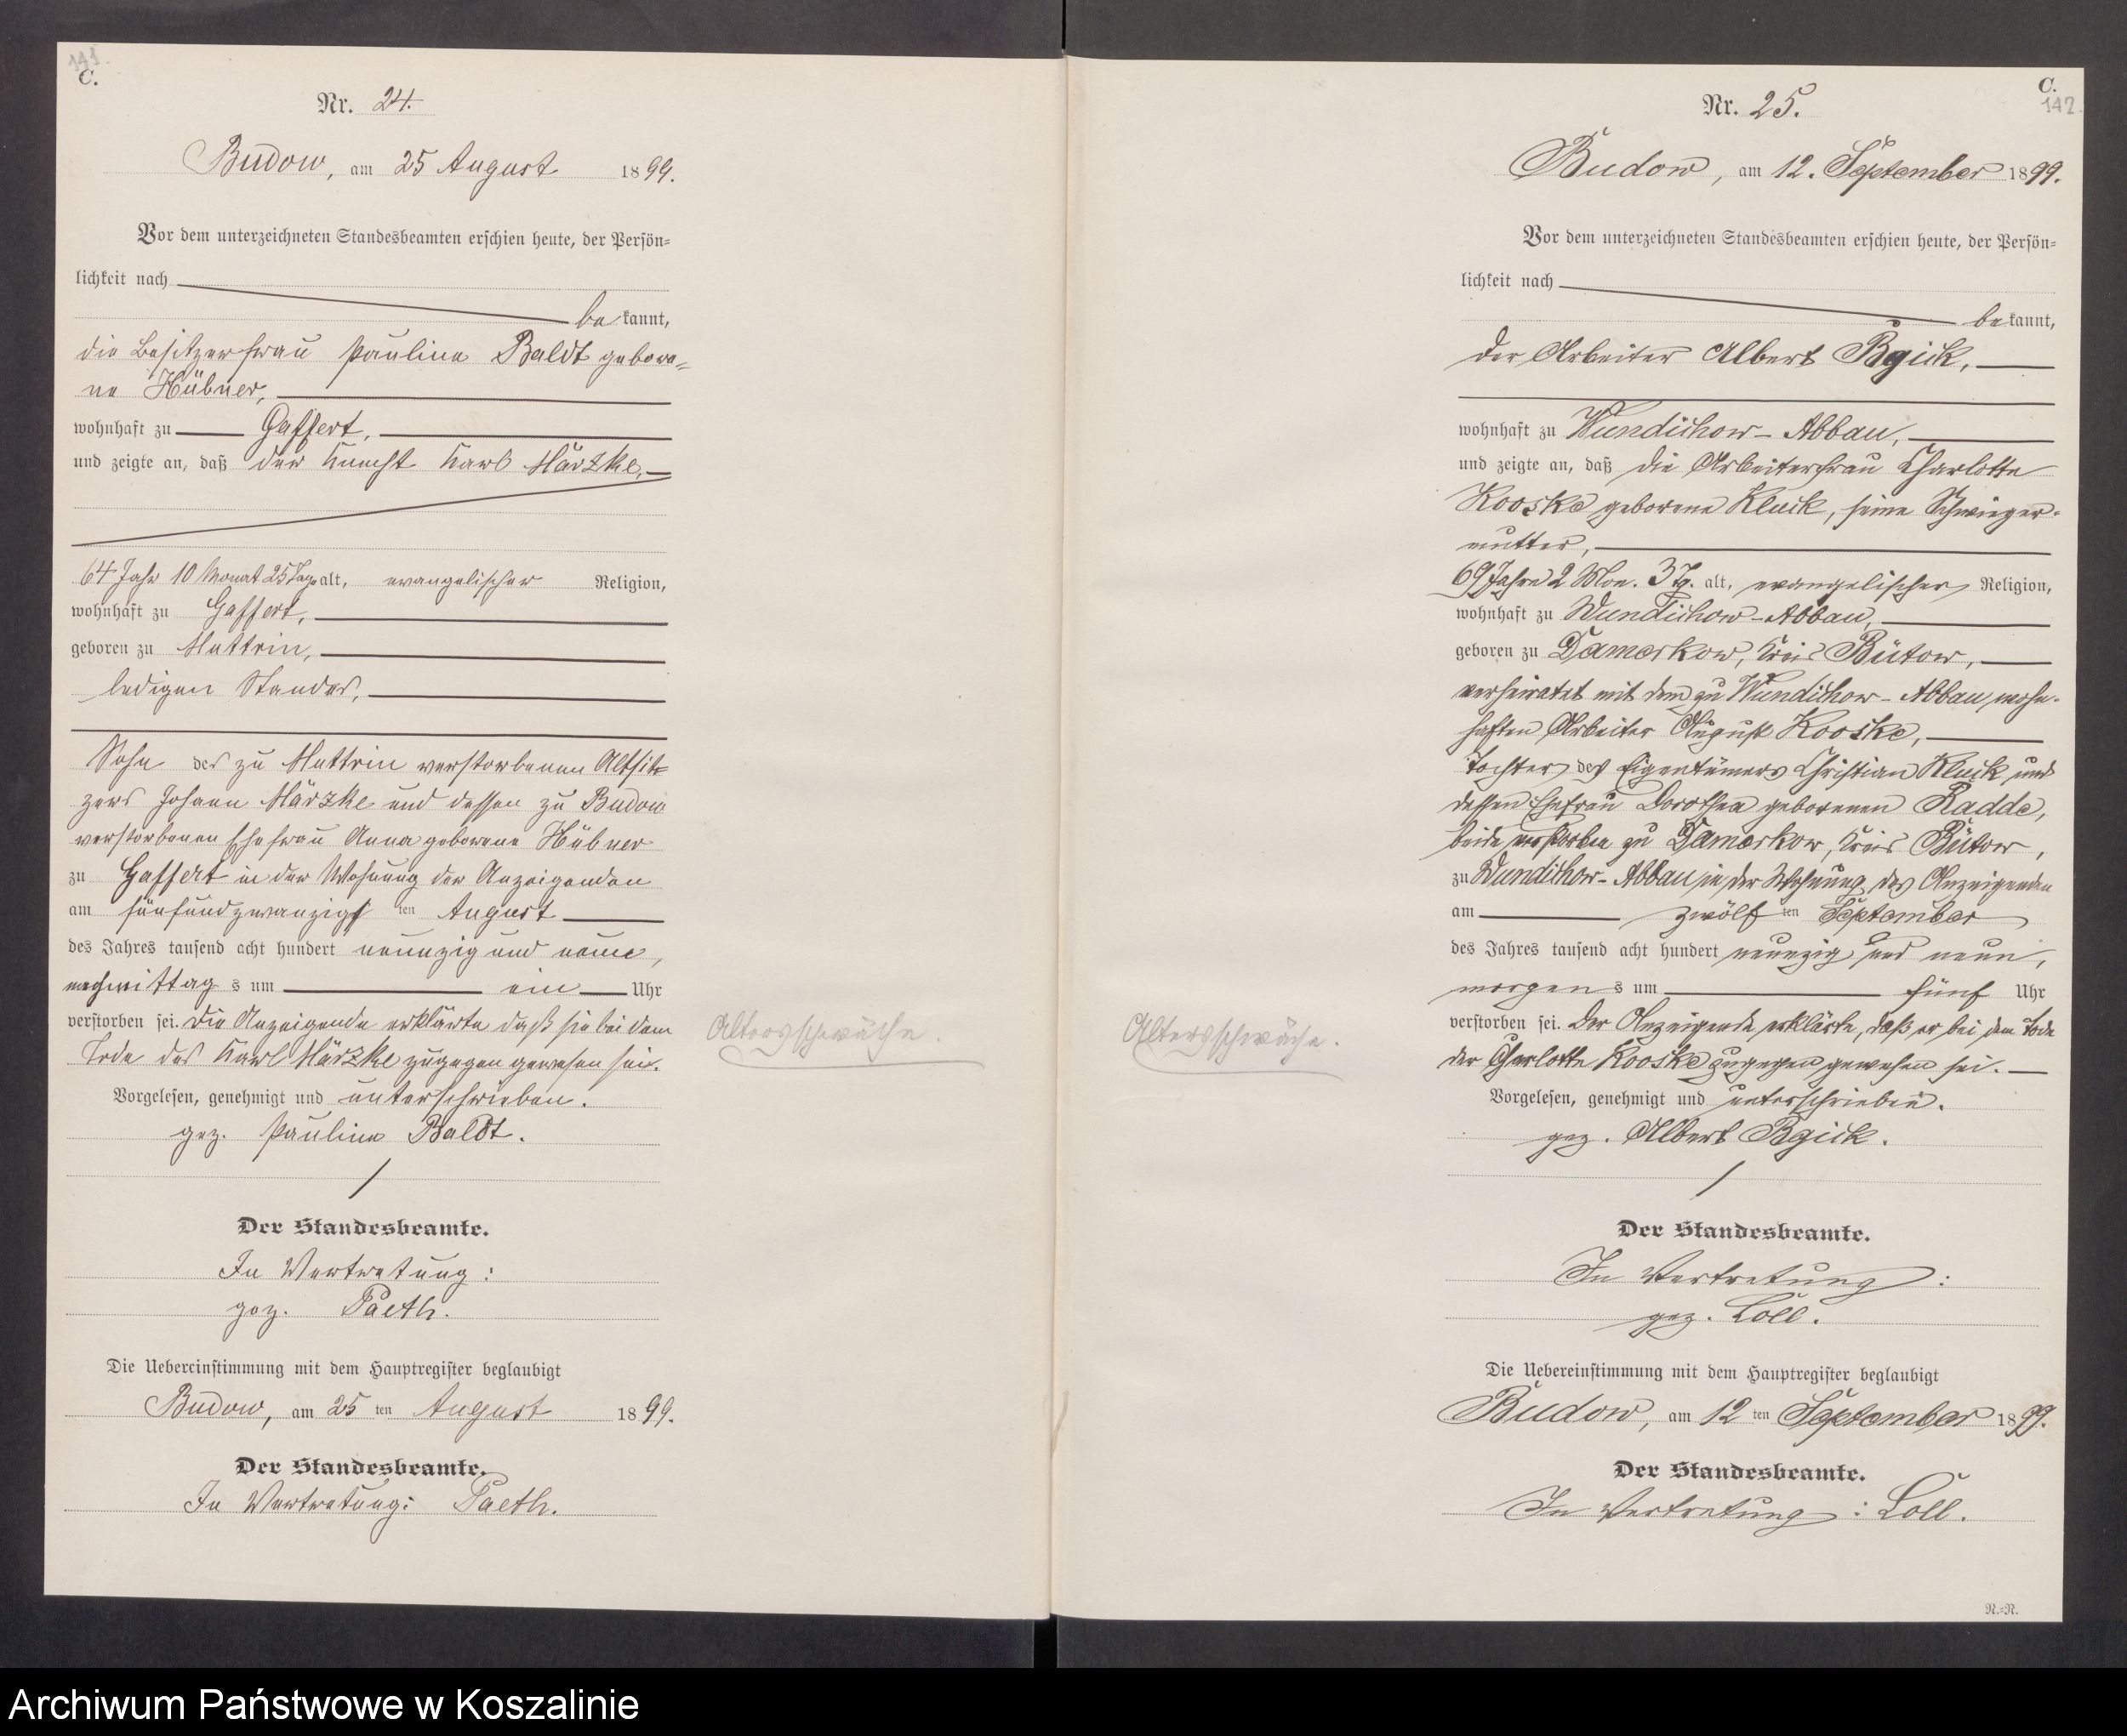 141.
C.
Nr. 24.
Budow, am 25 August 1899.
Vor dem unterzeichneten Standesbeamten erschien heute, der Persön-
lichkeit nach
bekannt,
die Besitzerfrau Pauline Baldt gebore-
ne Hübner,
wohnhaft zu Gaffert,
und zeigte an, daß der Knecht Karl März­ke,
64 Jahr 10 Monat 25 Tage alt, evangelischer Religion,
wohnhaft zu Gaffert,
geboren zu Muttrin,
ledigen Standes,
Sohn des zu Muttrin verstorbenen Altsit-
zers Johann Märzke und dessen zu Budow
verstorbenen Ehefrau Anna geborene Hübner
zu Gaffert in der Wohnung der Anzeigenden
am fünfundzwanzigsten August
des Jahres tausend acht hundert neunzig und neun,
nachmittags um ein Uhr
verstorben sei. Die Anzeigende erklärte daß sie bei dem
Tode des Karl Märzke zugegen gewesen sei.
Altersschwäche.
Vorgelesen, genehmigt und unterschrieben.
gez. Pauline Baldt.
Der Standesbeamte.
In Vertretung:
gez. Paeth.
Die Uebereinstimmung mit dem Hauptregister beglaubigt
Budow, am 25 ten August 1899.
Der Standesbeamte.
In Vertretung: Paeth.
C.
142.
Nr. 25.
Budow, am 12. September 1899.
Vor dem unterzeichneten Standesbeamten erschien heute, der Persön-
lichkeit nach
bekannt,
der Arbeiter Albert Bgick,
wohnhaft zu Wundichow-Abbau,
und zeigte an, daß die Arbeiterfrau Charlotte
Kooske geborene Kluck, seine Schwieger-
mutter,
69 Jahre 2 Mon. 3 Tg. alt, evangelischer Religion,
wohnhaft zu Wundichow-Abbau,
geboren zu Damerkow, Kreis Bütow,
verheiratet mit dem zu Wundichow-Abbau wohn-
haften Arbeiter August Kooske,
Tochter des Eigentümers Christian Kluck und
dessen Ehefrau Dorothea geborenen Radde,
beide verstorben zu Damerkow, Kreis Bütow,
zu Wundichow-Abbau in der Wohnung des Anzeigenden
am zwölften September
des Jahres tausend acht hundert neunzig und neun,
morgens um fünf Uhr
verstorben sei. Der Anzeigende erklärte, daß er bei dem Tode
der Charlotte Kooske zugegen gewesen sei.
Altersschwäche.
Vorgelesen, genehmigt und unterschrieben.
gez. Albert Bgick.
Der Standesbeamte.
In Vertretung:
gez. Loll.
Die Uebereinstimmung mit dem Hauptregister beglaubigt
Budow, am 12 ten September 1899.
Der Standesbeamte.
In Vertretung: Loll.
R.-R.
Archiwum Państwowe w Koszalinie